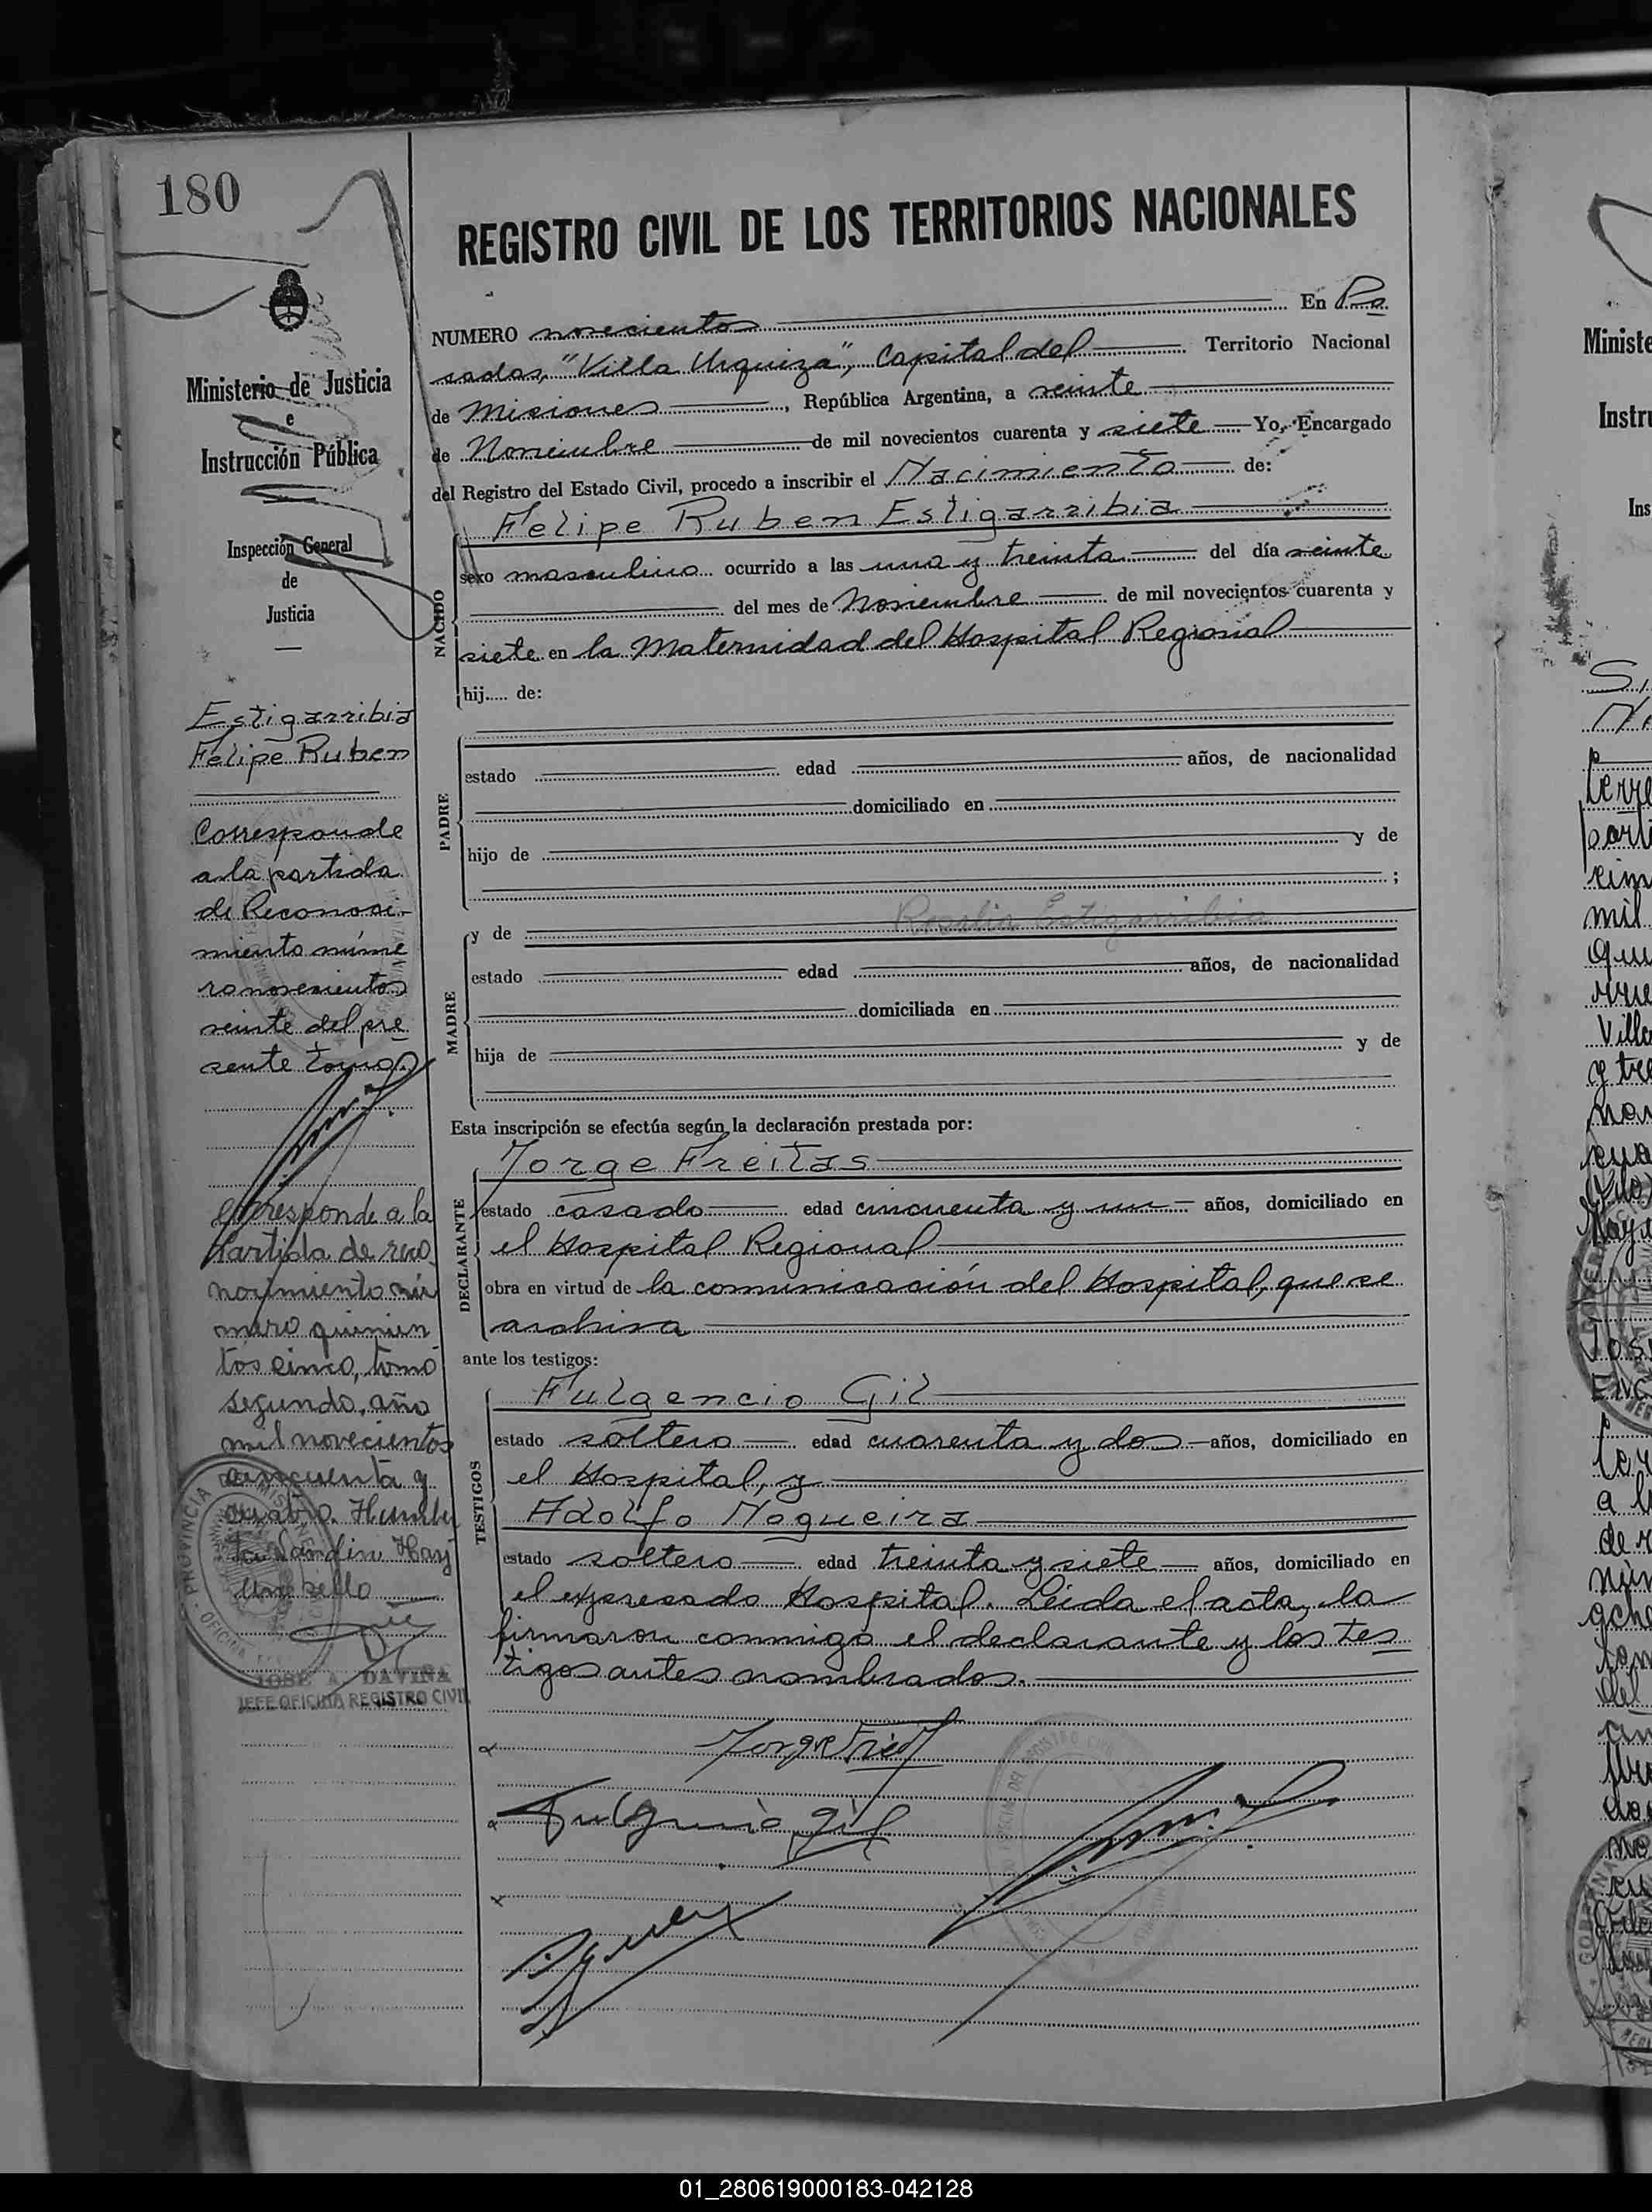 180
REGISTRO CIVIL DE LOS TERRITORIOS NACIONALES
NUMERO novecientos En Po
sadas, "Villa Urquiza", Capital del Territorio Nacional
de Misiones, República Argentina, a veinte
de Noviembre de mil novecientos cuarenta y siete Yo, Encargado
del Registro del Estado Civil, procedo a inscribir el Nacimiento de:
Felipe Ruben Estigarribia
NACIDO
sexo masculino ocurrido a las una y treinta del día veinte
del mes de Noviembre de mil novecientos cuarenta y
siete en la Maternidad del Hospital Regional
hij..... de:
PADRE
estado edad años, de nacionalidad
domiciliado en
hijo de y de
;
MADRE
y de Rosalia Estigarribia
estado edad años, de nacionalidad
domiciliada en
hija de y de
Esta inscripción se efectúa según la declaración prestada por:
DECLARANTE
Jorge Freitas
estado casado edad cincuenta y un años, domiciliado en
el Hospital Regional
obra en virtud de la comunicación del Hospital, que se
archiva
ante los testigos:
TESTIGOS
Fulgencio Gil
estado soltero edad cuarenta y dos años, domiciliado en
el Hospital, y
Adolfo Nogueira
estado soltero edad treinta y siete años, domiciliado en
el expresado Hospital. Leida el acta, la
firmaron conmigo el declarante y los tes
tigos antes nombrados.
Fulgencio Gil
Ministerio de Justicia
e
Instrucción Pública
Inspección General
de
Justicia
Estigarribia
Felipe Ruben
Corresponde
a la partida
de Reconoci-
miento núme
ro novecientos
veinte del pre
sente tomo.
Corresponde a la
Partida de reco
nocimiento nú
mero quinien
tos cinco, tomo
segundo, año
mil novecientos
cincuenta y
cuatro. Humber
to
un sello
PROVINCIA
OFICINA
JOSE A. DAVIÑA
JEFE OFICINA REGISTRO CIVIL
Ministe
Instru
Ins
01_280619000183-042128